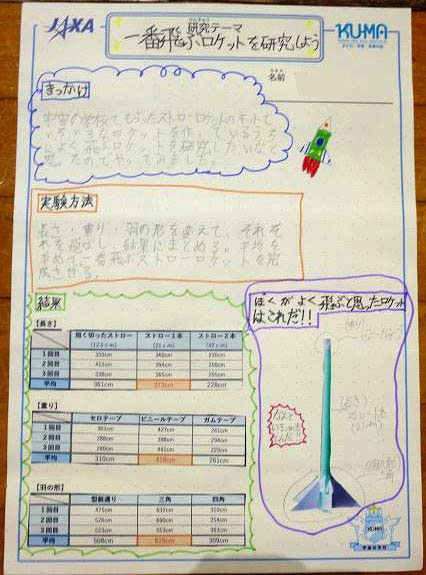 JAXA
研究テーマ
一番飛ぶロケットを研究しよう
KUMA
名前
きっかけ
宇宙の学校でもらったストローロケットのキットで
いろいろなロケットを作っているうち
によく飛ぶロケットを研究したいなと
思ったのでやってみました。
実験方法
長さ・重り・羽の形を変えて、それぞ
れを飛ばし、結果にまとめる。平均を
求めて一番飛ぶストローロケットを完
成させる。
結果
ぼくがよく飛ぶと思ったロケット
はこれだ!!
【長さ】
短く切ったストロー ストロー1本 ストロー2本
1回目
2回目
3回目
平均 361cm 373cm 228cm
【重り】
セロテープ ビニールテープ ガムテープ
1回目 363cm 427cm 261cm
2回目 288cm 388cm 294cm
3回目 280cm 441cm 229cm
平均 310cm 418cm 261cm
【羽の形】
型紙通り 三角 四角
1回目 475cm 632cm 310cm
2回目 526cm 690cm 254cm
3回目 523cm 553cm 363cm
平均 508cm 625cm 309cm
(重り)
ビニールテープ
(長さ)
ストロー1本
(21cm)
(羽の形)
三角
KUMA
宇宙の学校